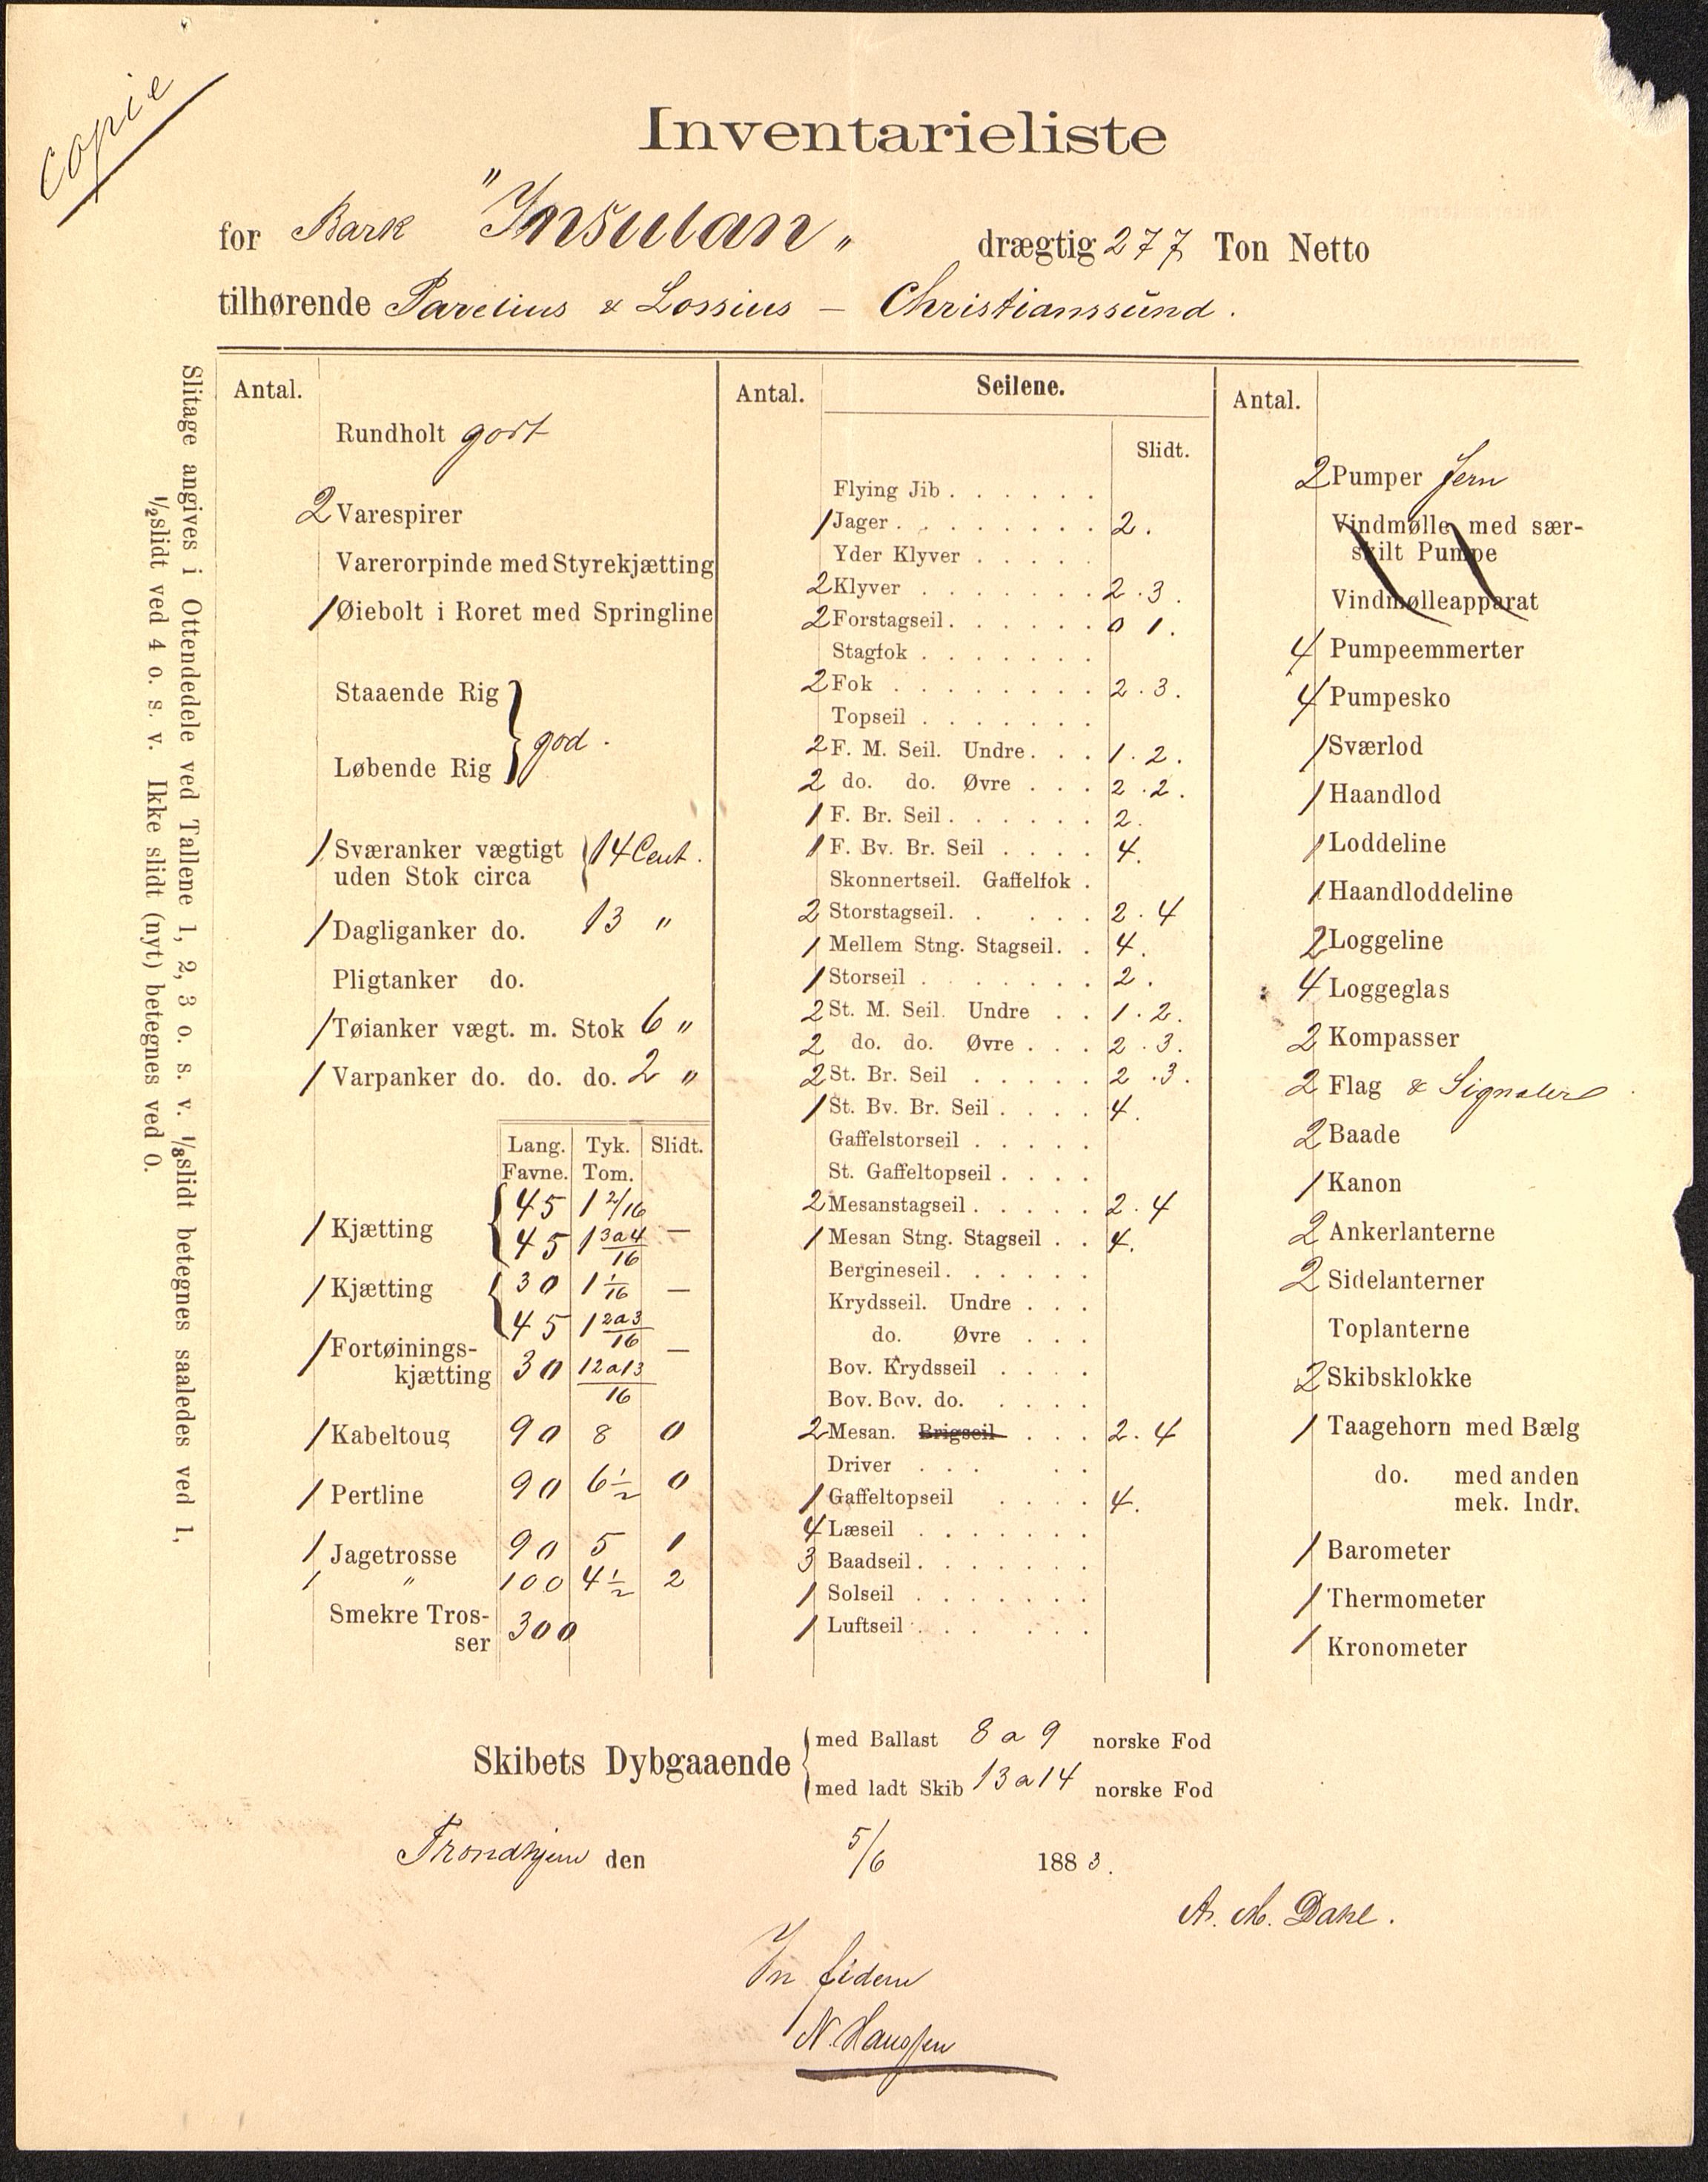 Copie
Inventarieliste
for Bark "Insulan" drægtig 277 Ton Netto
tilhørende Parelius & Lossius — Christianssund.
Slitage angives i Ottendedele ved Tallene 1, 2, 3 o. s. v. 1/8 slidt betegnes saaledes ved 1,
1/2 slidt ved 4 o. s. v. Ikke slidt (nyt) betegnes ved 0.
Antal.
Rundholt godt
2 Varespirer
Varerorpinde med Styrekjætting
1 Øiebolt i Roret med Springline
Staaende Rig
Løbende Rig } god.
1 Sværanker vægtigt
uden Stok circa { 14 Cent.
1 Dagliganker do. 13 "
Pligtanker do.
1 Tøianker vægt. m. Stok 6 "
1 Varpanker do. do. do. 2 "
Lang. Tyk. Slidt.
Favne. Tom.
45 1 2/16
1 Kjætting { 45 1 3a4/16 —
1 Kjætting { 30 1 1/16 —
45 1 2a3/16
1 Fortøinings- —
kjætting 30 12a13/16
1 Kabeltoug 90 8 0
1 Pertline 90 6 1/2 0
1 Jagetrosse 90 5 1
1 " 100 4 1/2 2
Smekre Tros-
ser 300
Antal. Seilene.
Slidt.
Flying Jib . . . . . .
1 Jager . . . . . . . . 2.
Yder Klyver . . . . .
2 Klyver . . . . . . . 2.3.
2 Forstagseil . . . . . . 0 1.
Stagfok . . . . . . .
2 Fok . . . . . . . . 2.3.
Topseil . . . . . . .
2 F. M. Seil. Undre . . . 1.2.
2 do. do. Øvre . . . 2.2.
1 F. Br. Seil . . . . . . 2.
1 F. Bv. Br. Seil . . . . 4.
Skonnertseil. Gaffelfok .
2 Storstagseil . . . . . . 2.4
1 Mellem Stng. Stagseil . . 4.
1 Storseil . . . . . . . 2.
2 St. M. Seil. Undre . . 1.2.
2 do. do. Øvre . . . 2.3.
2 St. Br. Seil . . . . . 2.3.
1 St. Bv. Br. Seil . . . . 4.
Gaffelstorseil . . . . .
St. Gaffeltopseil . . . .
2 Mesanstagseil . . . . . 2.4
1 Mesan Stng. Stagseil . . 4.
Bergineseil . . . . . .
Krydsseil. Undre . . .
do. Øvre . . .
Bov. Krydsseil . . . .
Bov. Bov. do. . . . .
2 Mesan. Brigseil . . . 2.4
Driver . . . . .
1 Gaffeltopseil . . . . 4.
4 Læseil . . . . . . .
3 Baadseil . . . . . . .
1 Solseil . . . . . . .
1 Luftseil . . . . . .
Antal.
2 Pumper Jern
Vindmølle med sær-
skilt Pumpe
Vindmølleapparat
4 Pumpeemmerter
4 Pumpesko
1 Sværlod
1 Haandlod
1 Loddeline
1 Haandloddeline
2 Loggeline
4 Loggeglas
2 Kompasser
2 Flag & Signaler
2 Baade
1 Kanon
2 Ankerlanterne
2 Sidelanterner
Toplanterne
2 Skibsklokke
1 Taagehorn med Bælg
do. med anden
mek. Indr.
1 Barometer
1 Thermometer
1 Kronometer
Skibets Dybgaaende { med Ballast 8 a 9 norske Fod
med ladt Skib 13 a 14 norske Fod
Trondhjem den 5/6 1883.
A. M. Dahl.
In fidem
N. Hanssen